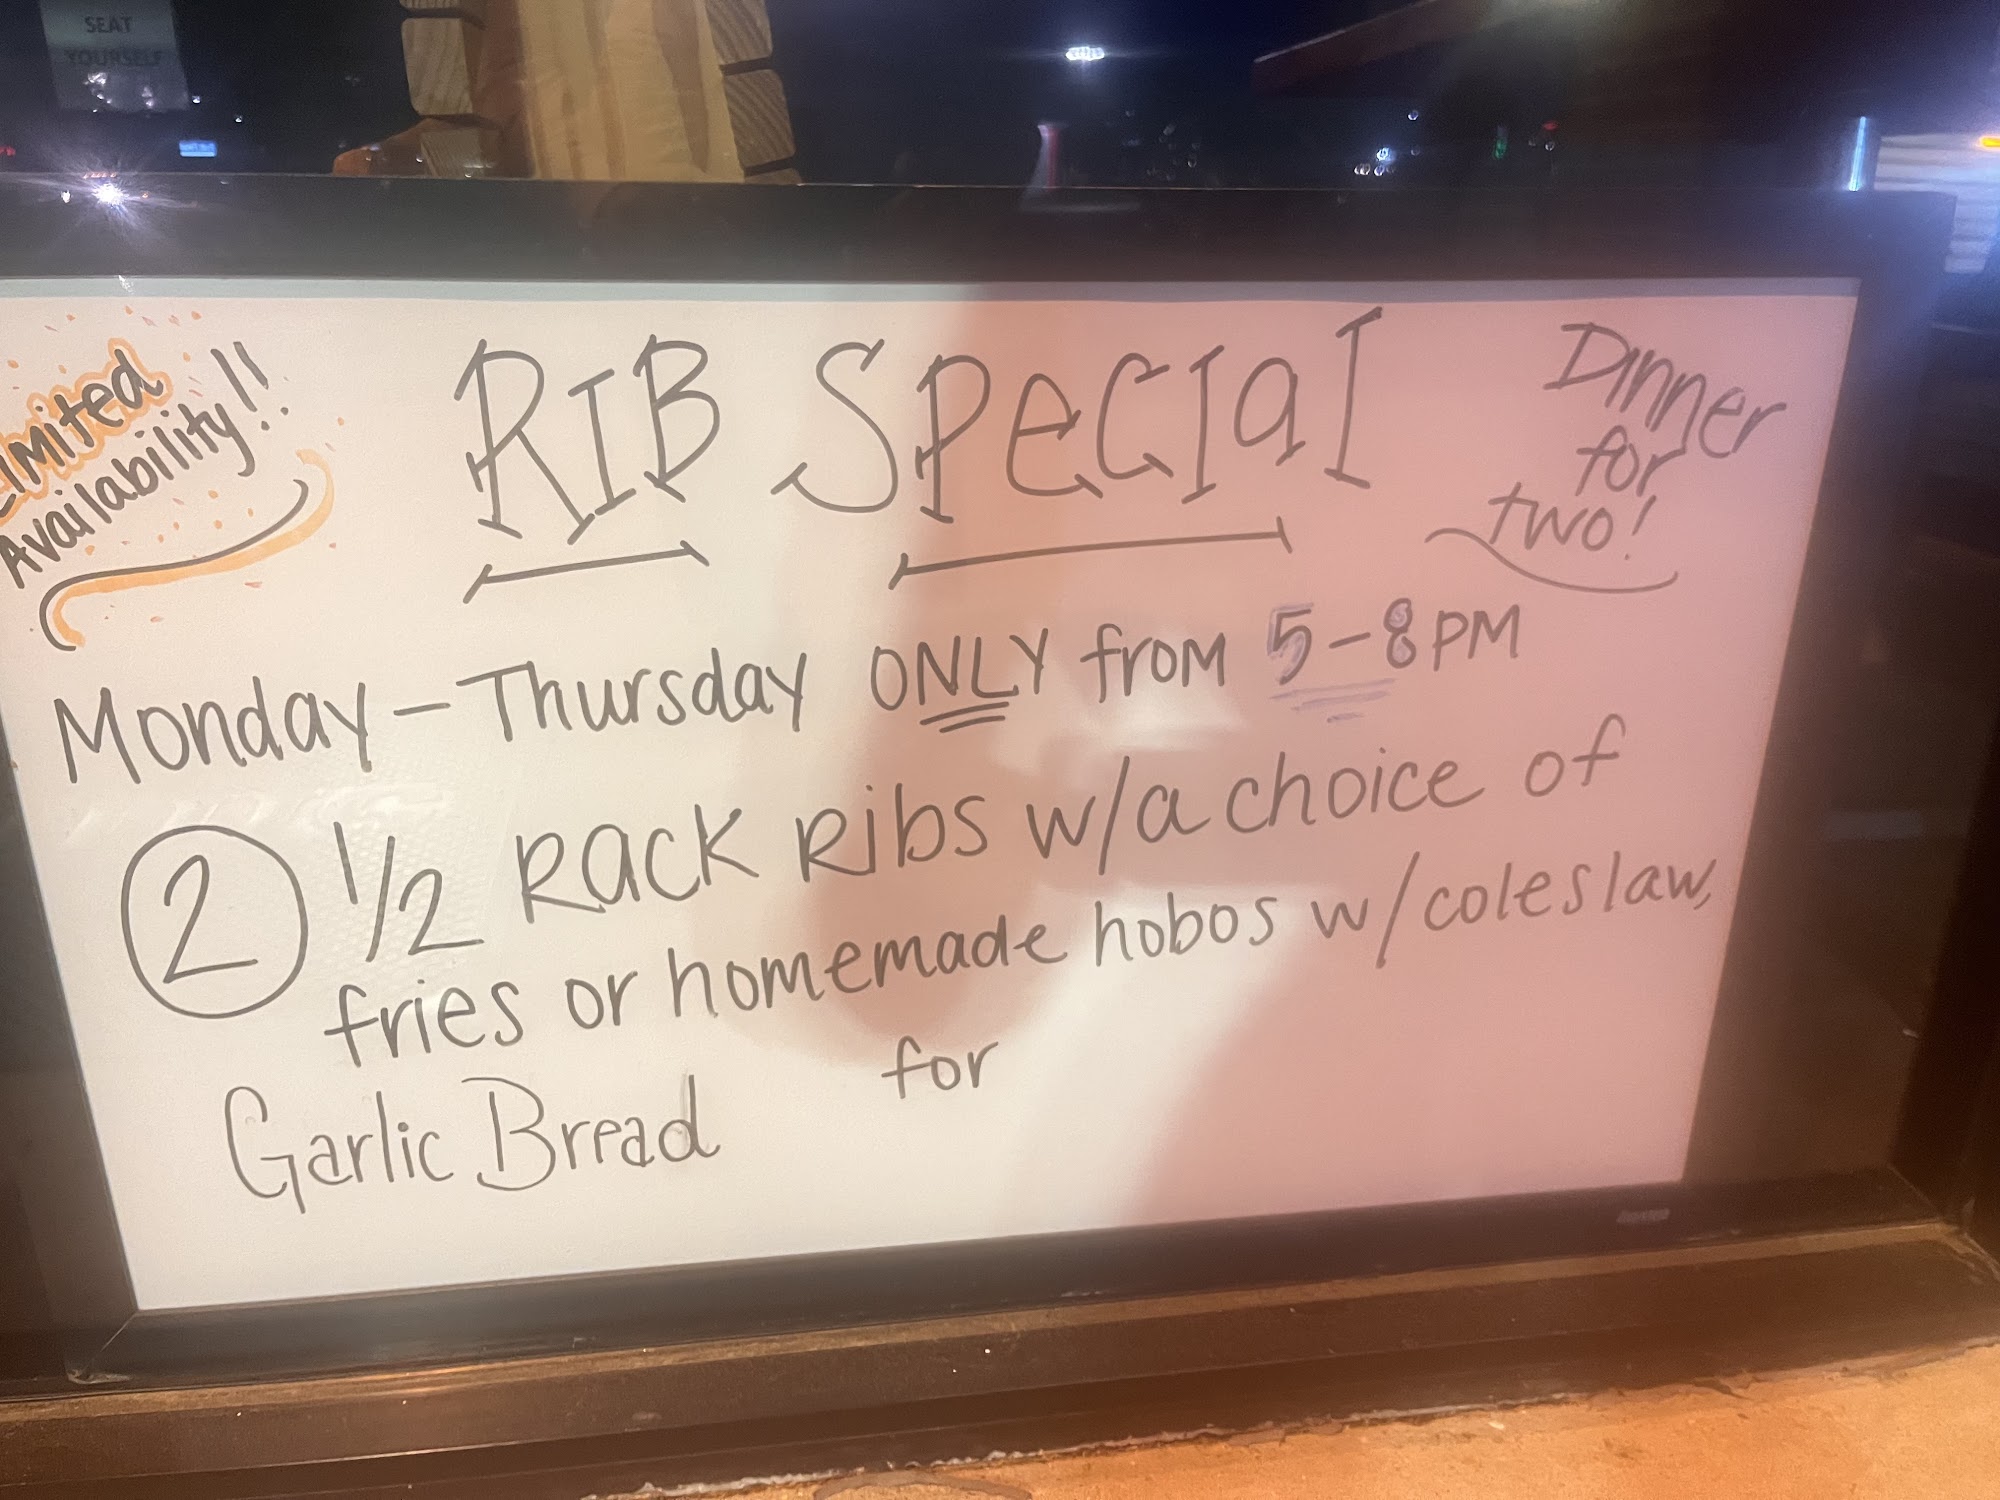 SEAT
YOURSELF
Limited
Availability!!
RIB SPecIal
Dinner
for
two!
Monday - Thursday ONLY from 5-8PM
2 1/2 Rack Ribs w/a choice of
fries or homemade hobos w/coleslaw,
Garlic Bread for